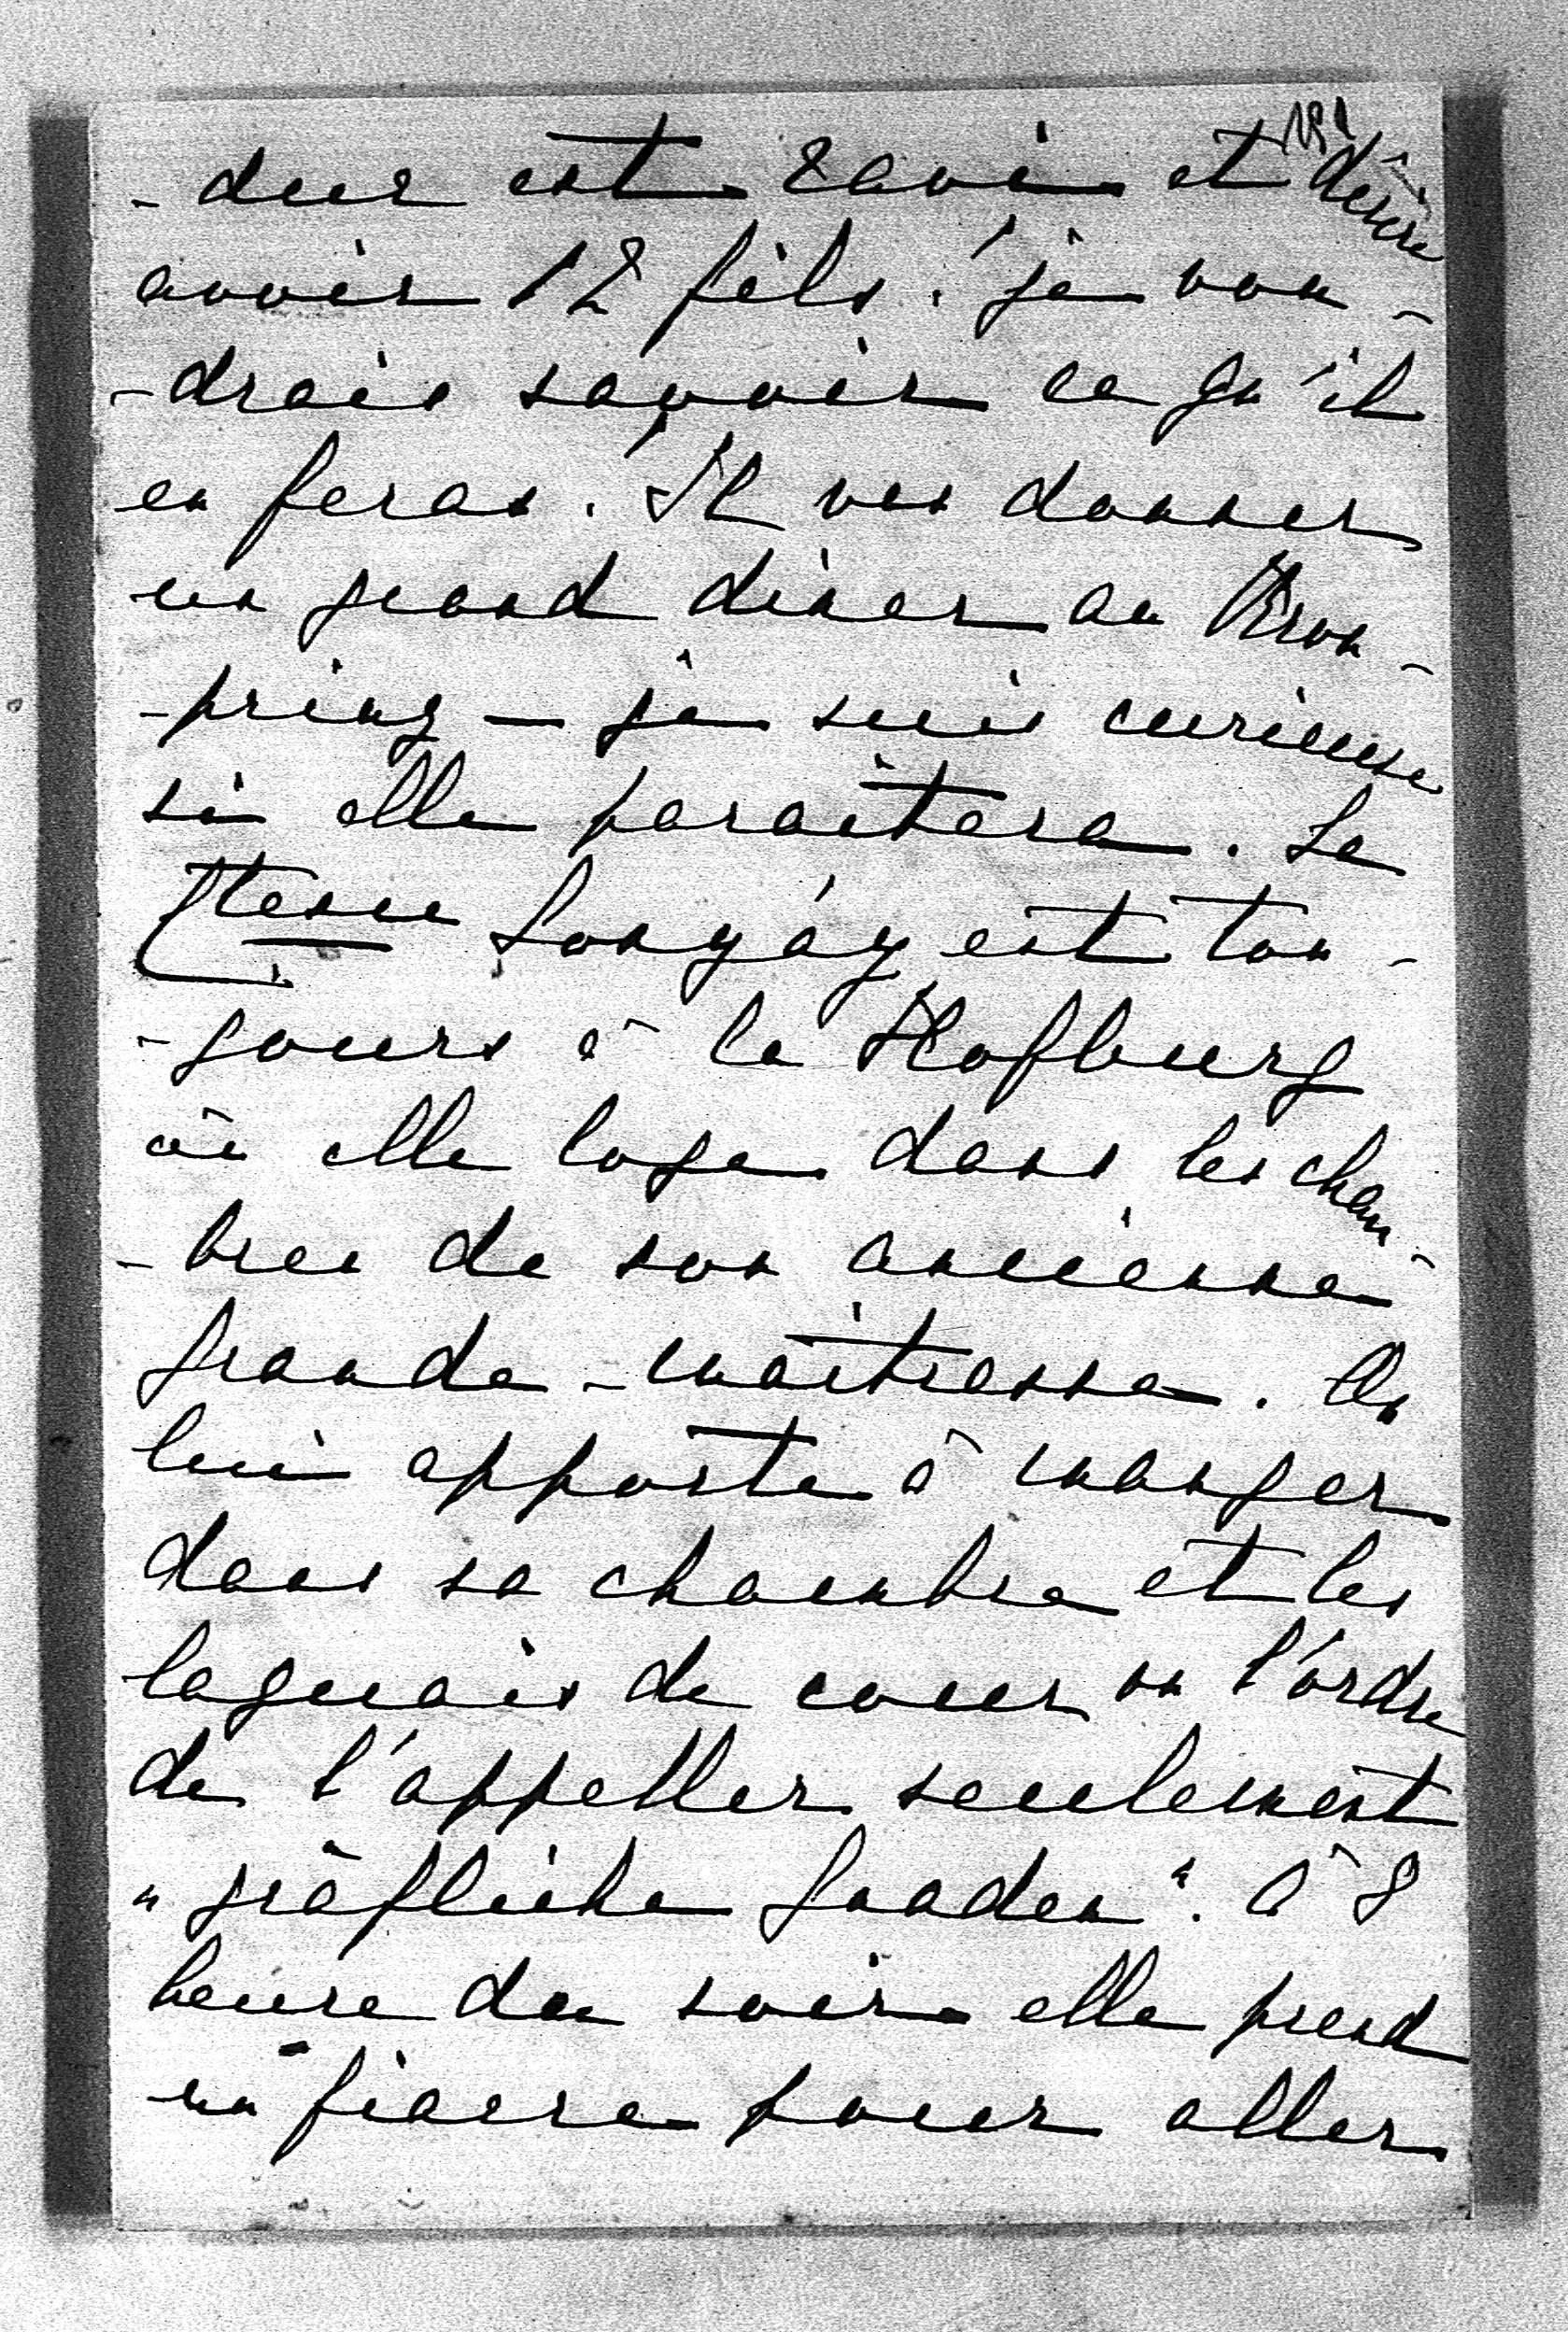 -deur est ravi et désire
avoir 12 fils. je vou-
-drais savoir ce qu'il
en feras. Il vas donner
un grand diner au Kron-
-prinz — je suis curieuse
si elle paraîtera. La
Ctesse Lonyáy est tou-
-jours à la Hofburg
où elle loge dans les cham-
-bres de son ancienne
grande-maîtresse. On
lui apporte à manger
dans sa chambre et les
laquais de cour on l'ordre
de l'appeller seulement
"gräfliche Gnaden". à 8
heure du soir elle prend
un fiacre pour aller